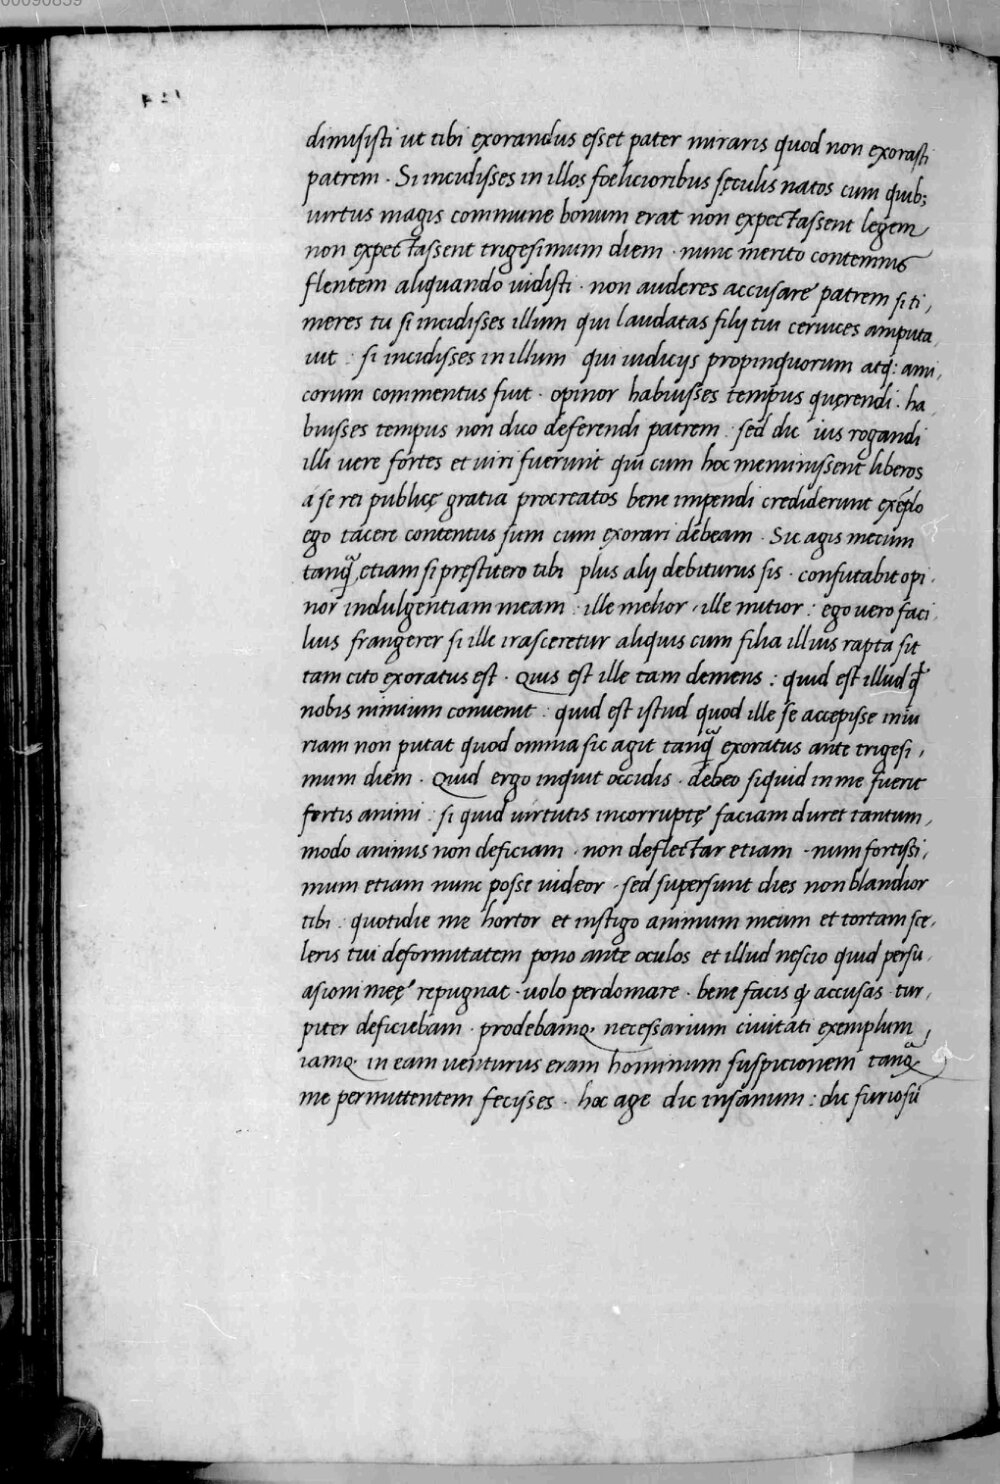 dimisisti ut tibi exorandus esset pater miraris quod non exorasti
patrem · Si incidisses in illos foelicioribus seculis natos cum quib;
uirtus magis commune bonum erat non expectassent legem
non expectassent trigesimum diem · nunc merito contemnis
flentem aliquando uidisti · non auderes accusare patrem si ti,
meres tu si incidisses illum qui laudatas filij tui ceruices amputa,
uit : si incidisses in illum qui iudicijs propinquorum atq: ami,
corum commentus fuit · opinor habuisses tempus quęrendi . ha,
buisses tempus non dico deferendi patrem : sed dic ius rogandi
illi uere fortes et uiri fuerunt qui cum hoc meminissent liberos
á se rei publicę gratia procreatos bene impendi crediderunt exẽplo
ego tacere contentus sum cum exorari debeam · Sic agis mecum
tanq̃ etiam si pręstitero tibi plus alij debiturus sis · confutabit opi,
nor indulgentiam meam : ille melior · ille mitior : ego uero faci,
lius frangerer si ille irasceretur aliquis cum filia illius rapta sit
tam cito exoratus est · Quis est ille tam demens : quid est illud ꝙ
nobis nimium conuenit : quid est istud quod ille se accepisse iniu
riam non putat quod omnia sic agit tanq̃ exoratus ante trigesi,
mum diem · Quid ergo inquit occidis · debeo siquid in me fuerit
fortis animi : si quid uirtutis incorruptę faciam duret tantum,
modo animus non deficiam · non deflectar etiam · num fortissi,
mum etiam nunc posse uideor · sed supersunt dies non blandior
tibi : quotidie me hortor et instigo animum meum et tortam sce,
leris tui deformitatem pono ante oculos et illud nescio quid persu,
asioni meę repugnat · uolo perdomare · bene facis ꝙ accusas · tur,
piter deficiebam · prodebamq· necessarium ciuitati exemplum,
iamq· in eam uenturus eram hominum suspicionem tanq̃
me permittentem fecisses · hoc age dic insanum : dic furiosũ